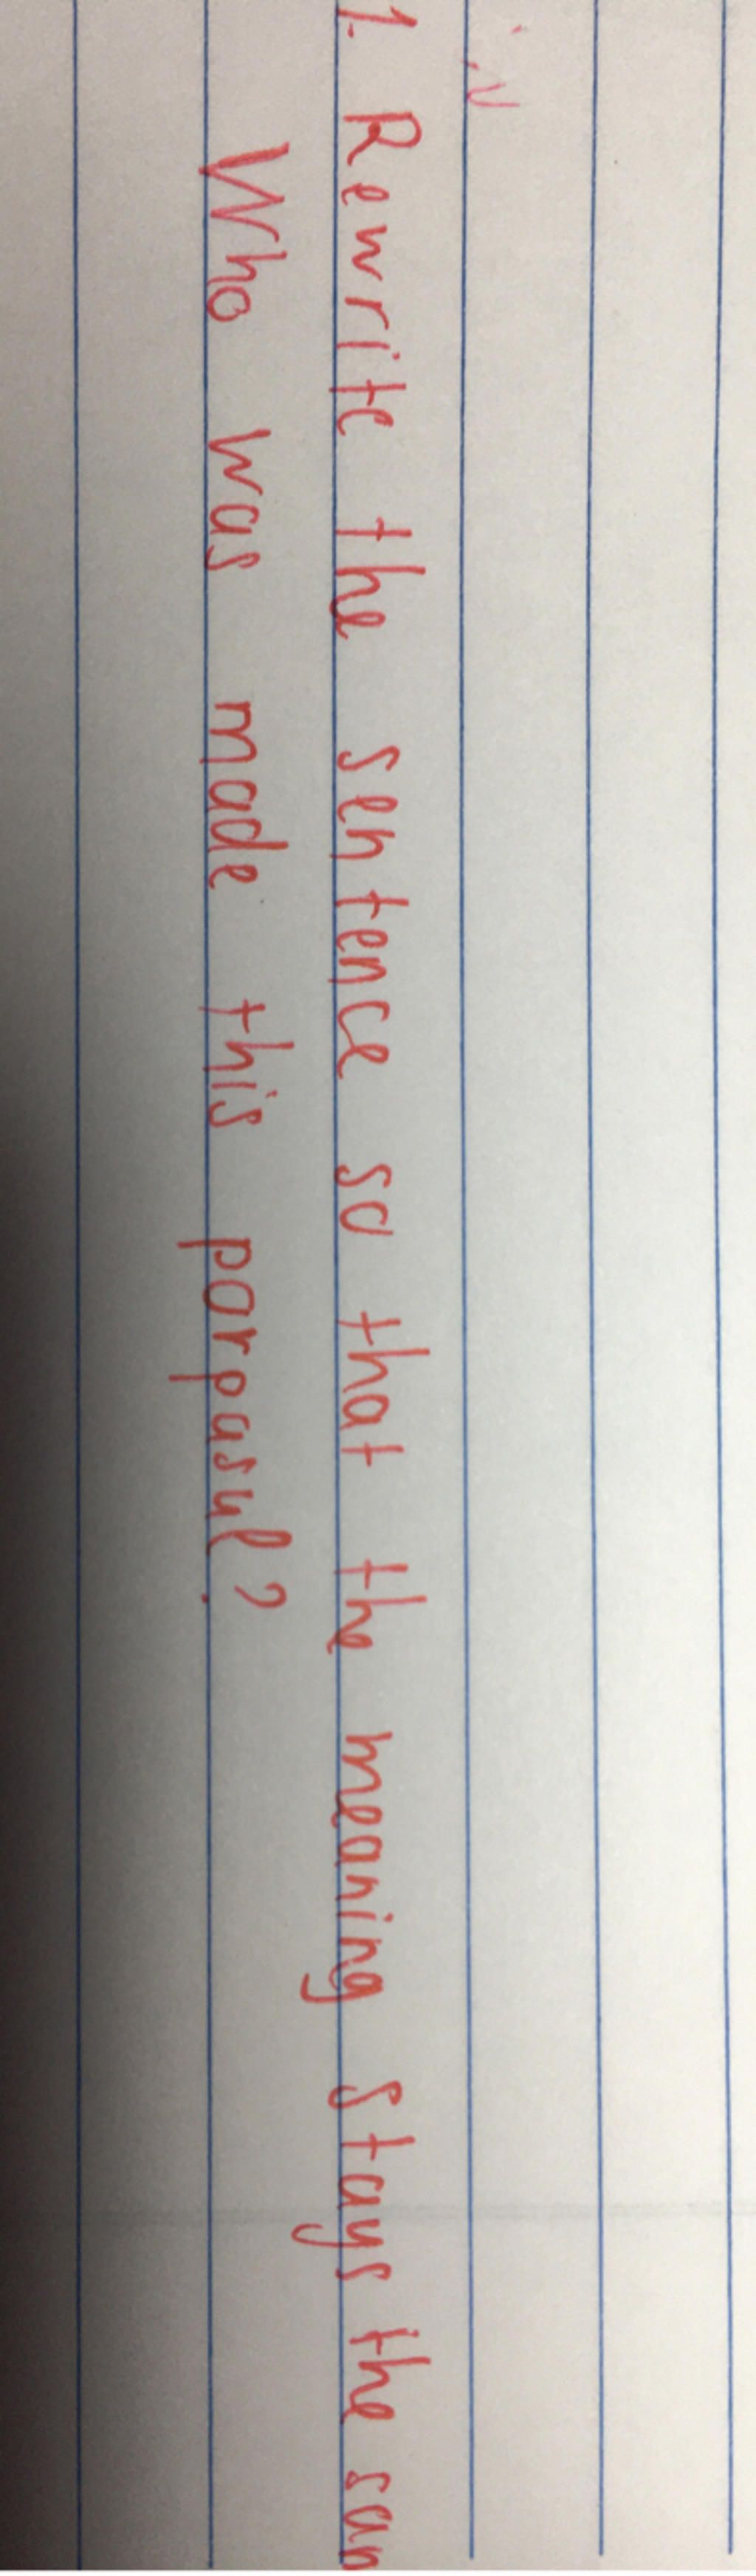 1. Rewrite the sentence so that the meaning stays the sam
Who was made this porpasul?